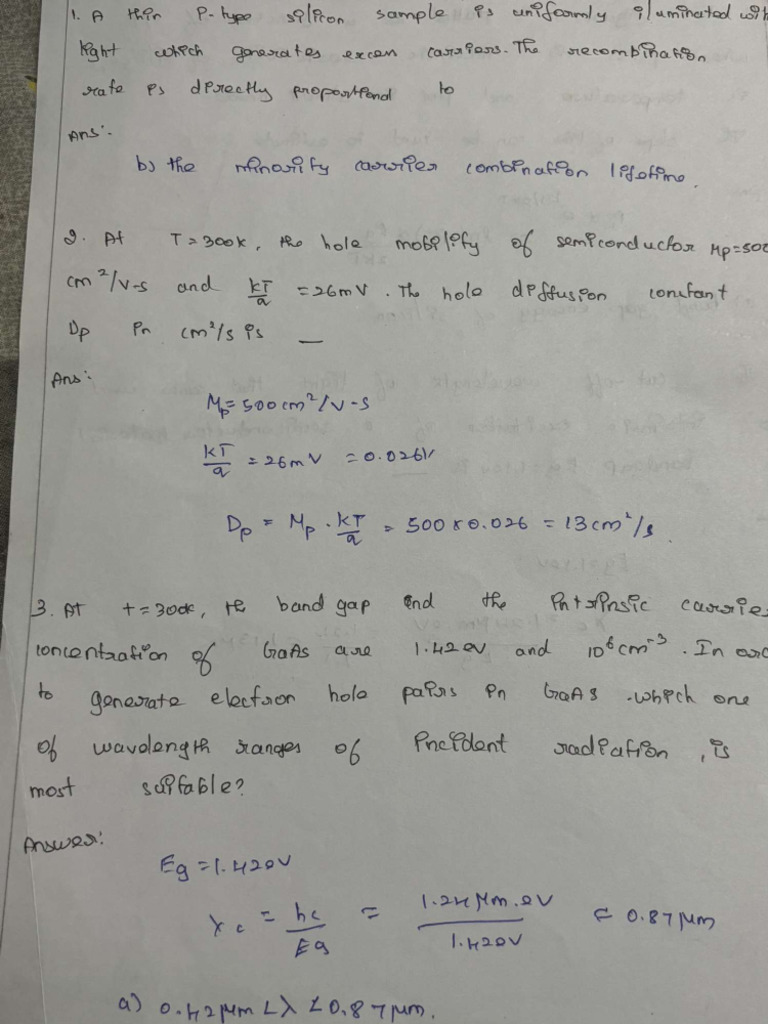 1. A thin P-type silicon sample is uniformly iluminated with
light which generates excen carriers. The recombination
rate is directly proportional to
Ans:-
b) the minority carrier combination lifetime.
2. At T=300k, the hole mobility of semiconductor μp=500
cm²/V-s and kT/q = 26mV. The hole diffusion constant
Dp in cm²/s is —
Ans:
μp=500cm²/V-s
kT/q = 26mV = 0.026V
Dp = μp . kT/q = 500×0.026 = 13cm²/s.
3. At t=300k, the band gap and the intrinsic carrie
concentration of GaAs are 1.42eV and 10⁶cm⁻³. In orc
to generate electron hole pairs in GaAs .which one
of wavelength ranges of incident radiation, is
most suitable?
Answer:
Eg=1.42eV
λc = hc/Eg = 1.24μm.eV/1.42eV = 0.87μm
a) 0.42μm<λ<0.87μm.